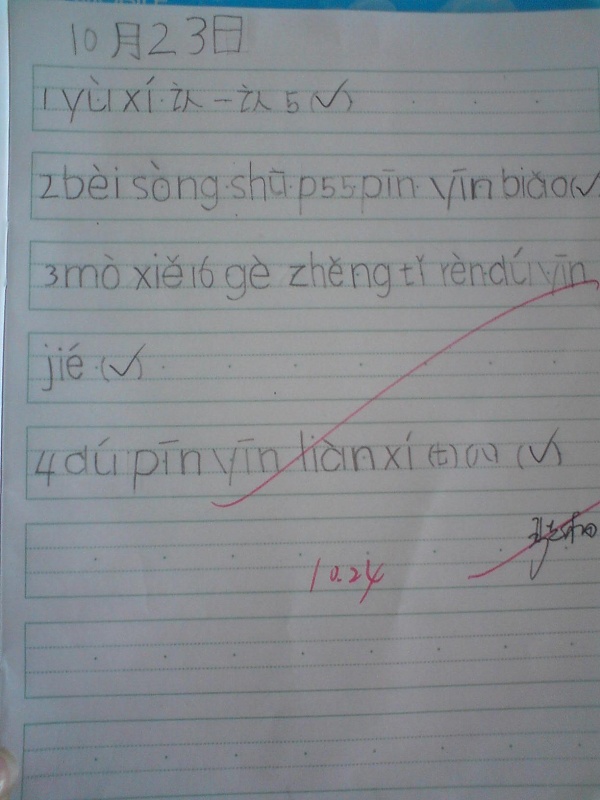 10月23日
1 yù xí 认一认 5 (✓)
2 bèi sòng shū p55 pīn yīn biǎo (✓
3 mò xiě 16 gè zhěng tǐ rèn dú yīn
jié (✓)
4 dú pīn yīn liàn xí (七) (八) (✓)
10.24